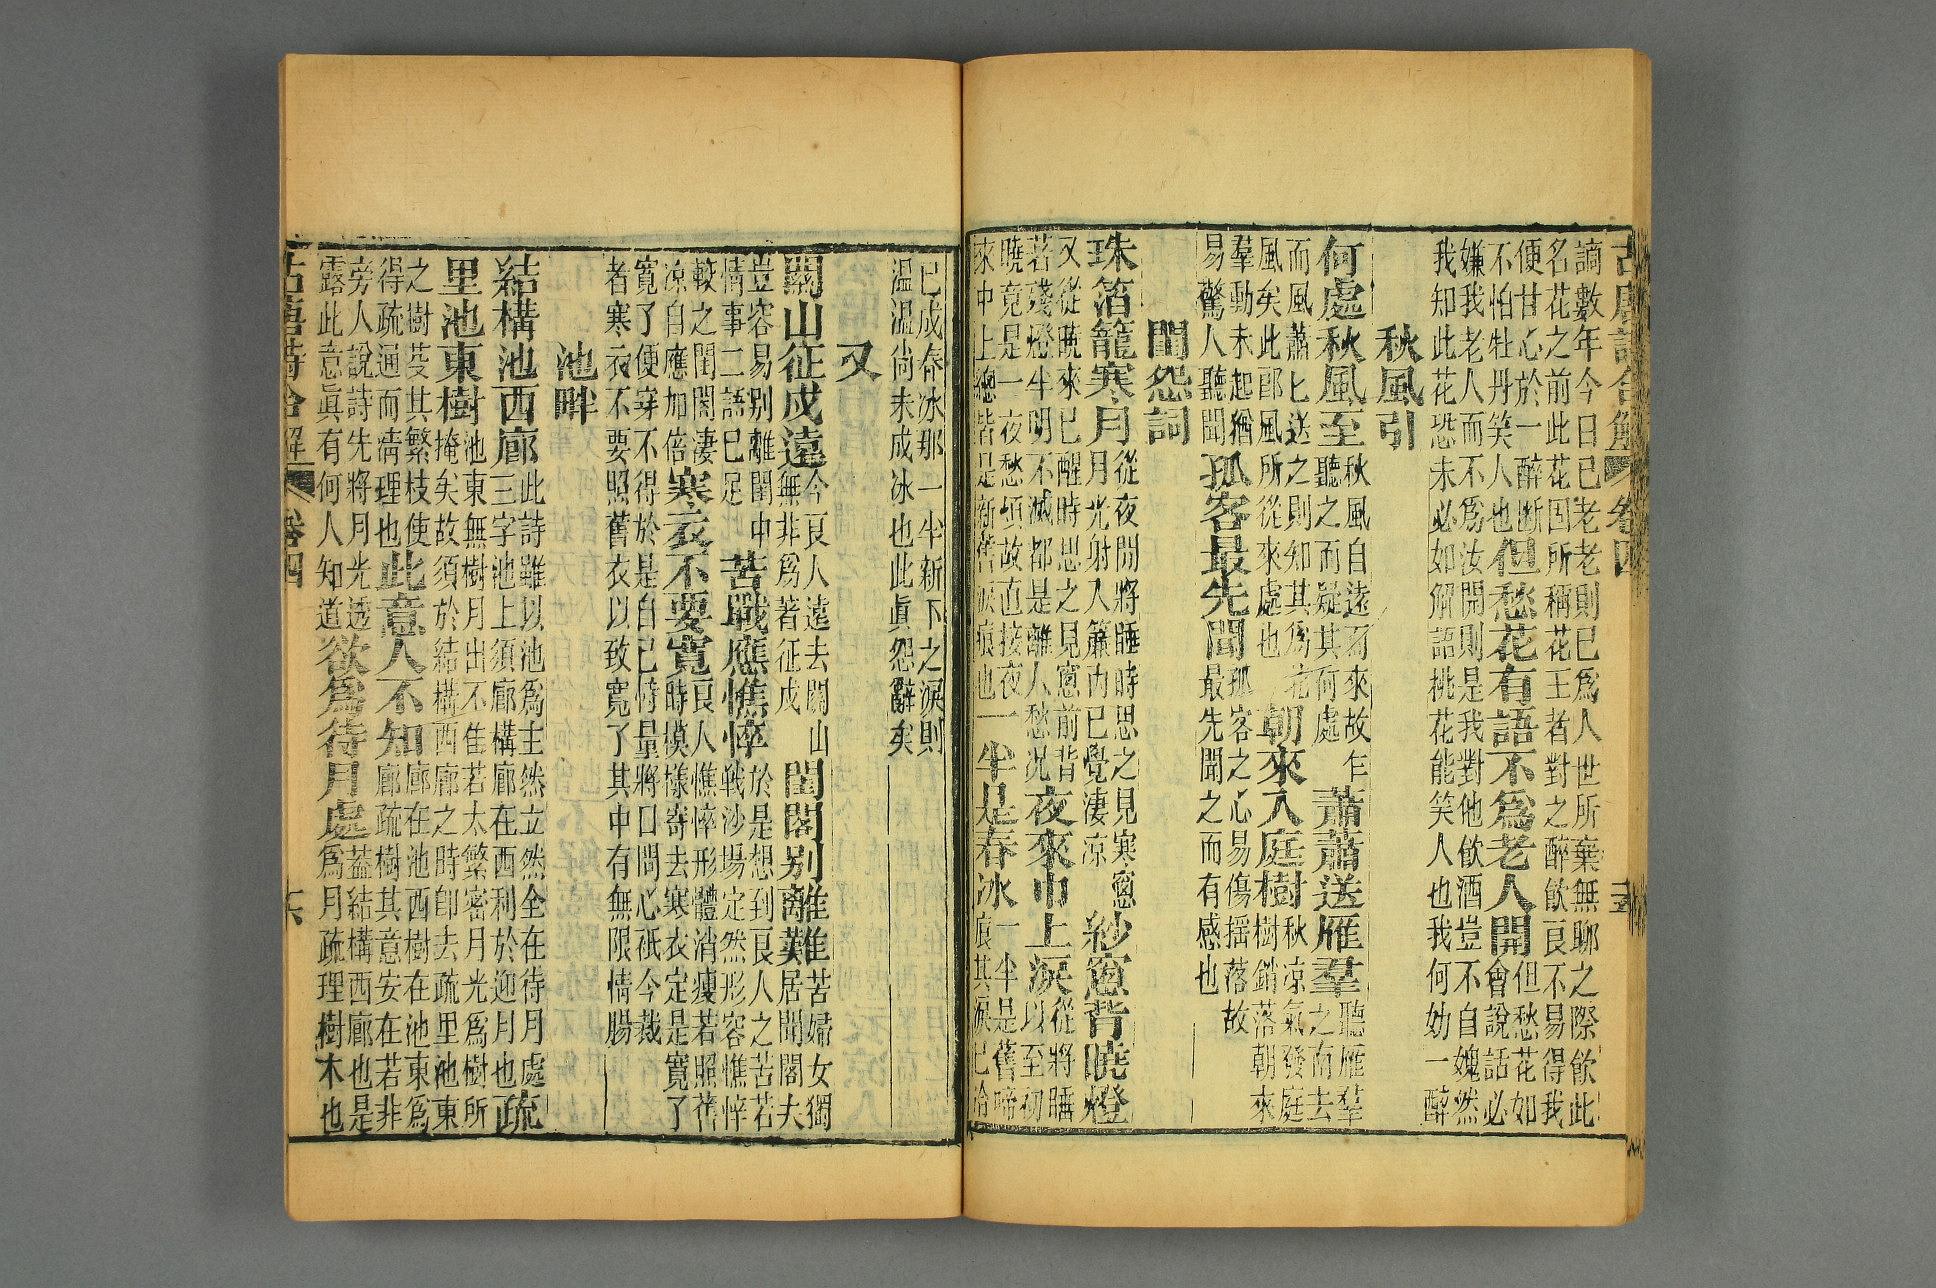 古唐詩合解 卷四
謫數年今日已老老則已爲人世所棄無聊之際飲此
名花之前此花因所稱花王者對之醉飲良不易得我
便甘心於一醉斷
不怕牡丹笑人也
但愁花有語不爲老人開
但愁花如
會說話必
嫌我老人而不爲汝開則是我對他飲酒豈不自媿然
我知此花恐未必如解語桃花能笑人也我何妨一醉
秋風引
何處秋風至
秋風自遠方來故乍
聽之而疑其何處
蕭蕭送雁羣
聽雁羣
之南去
而風蕭匕送之則知其爲
風矣此即風所從來處也
朝來入庭樹
秋涼氣發庭
樹銷落朝來
羣動未起猶
易驚人聽聞
孤客最先聞
孤客之心易傷搖落故
最先聞之而有感也
閨怨詞
珠箔籠寒月
從夜閒將睡時思之見寒窻
月光射入簾內已覺淒凉
紗窻背曉燈
又從曉來已醒時思之見窻前背
若殘燈半明不滅都是離人愁况
夜來巾上淚
從將睡
以至初
曉竟是一夜愁煩故直接夜
來巾上總皆是新舊淚痕也
一半是春冰
一半是舊啼
痕其淚已冾
已成春冰那一半新下之淚則
温温尚未成冰也此眞怨辭矣
又
關山征戍遠
今良人遠去關山
無非爲著征戍
閨閣別離難
苦婦女獨
居閨閣夫
豈容易別離閨中
情事二語已足
苦戰應憔悴
於是想到良人之苦若
戰沙場定然形容憔悴
較之閨閣淒
凉自應加倍
寒衣不要寬
良人憔悴形體消瘦若照舊
時模樣寄去寒衣定是寬了
寬了便穿不得於是自已忖量將口問心祇今裁
者寒衣不要照舊衣以致寬了其中有無限情腸
池畔
結構池西廊
此詩雖以池爲主然立然全在待月處
三字池上須廊構廊在西利於迎月也
疏
里池東樹
池東無樹月出不佳若太繁密月光爲樹所
掩矣故須於結構西廊之時即去疏里池東
之樹芟其繁枝使
得疏通而清理也
此意人不知
廊在池西樹在池東爲
廊疏樹其意安在若非
旁人說詩先將月光透
露此意眞有何人知道
欲爲待月處
蓋結構西廊也是
爲月疏理樹木也
古唐詩合解 卷四 六